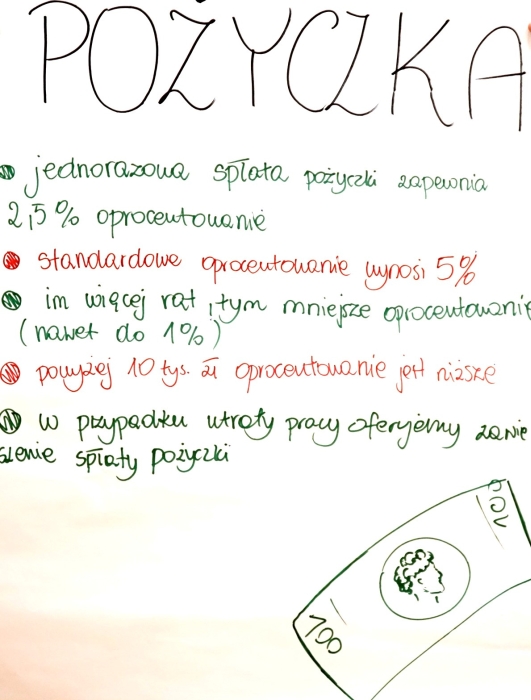 POŻYCZKA
jednorazowa spłata pożyczki zapewnia
2,5% oprocentowanie
standardowe oprocentowanie wynosi 5%
im więcej rat, tym mniejsze oprocentowanie
(nawet do 1%)
powyżej 10 tys. zł oprocentowanie jest niższe
w przypadku utraty pracy oferujemy zawie
szenie spłaty pożyczki
100
100